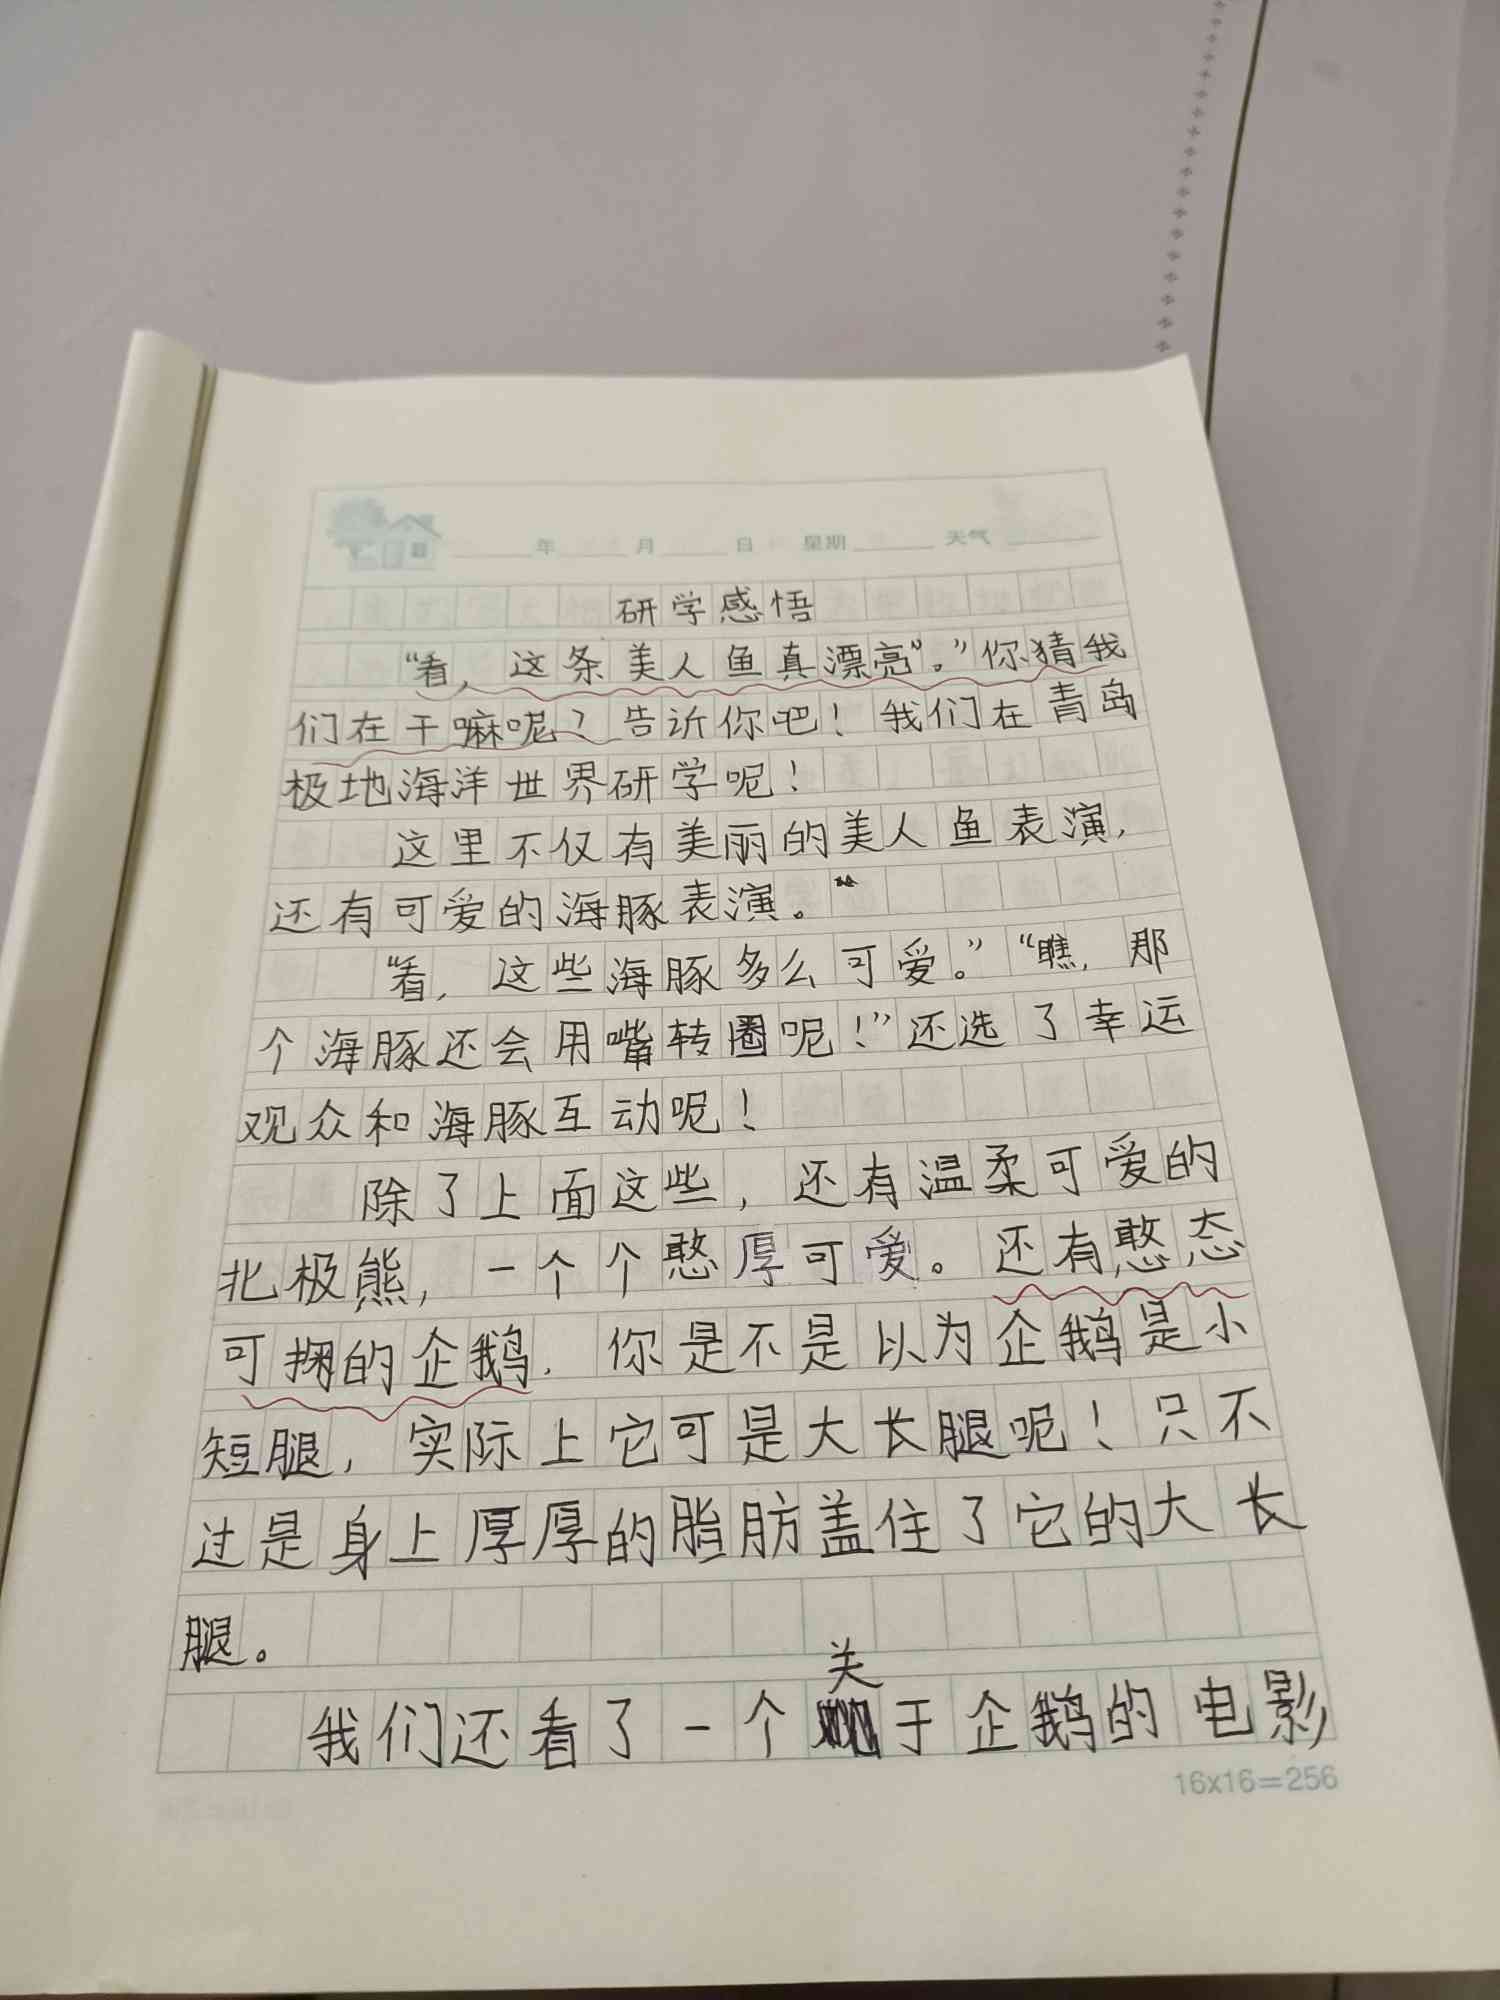 年 月 日 星期 天气
研学感悟
“看，这条美人鱼真漂亮”。”你猜我
们在干嘛呢？告诉你吧！我们在青岛
极地海洋世界研学呢！
这里不仅有美丽的美人鱼表演，
还有可爱的海豚表演。
“看，这些海豚多么可爱。”“瞧，那
个海豚还会用嘴转圈呢！”还选了幸运
观众和海豚互动呢！
除了上面这些，还有温柔可爱的
北极熊，一个个憨厚可爱。还有憨态
可掬的企鹅．你是不是以为企鹅是小
短腿，实际上它可是大长腿呢！只不
过是身上厚厚的脂肪盖住了它的大长
腿。
我们还看了一个关于企鹅的电影
16x16=256